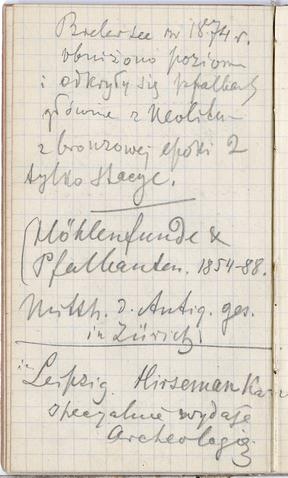 Bielersee w 1874 r.
obniżono poziom
i odkryły się pfalbauty
głównie z Neolitu
z bronzowej epoki 2
tylko stacye.
Höhlenfunde &
Pfalbauten. 1854-88.
Mitth. d. Antiq. ges.
in Zürich
in Leipzig. Hirseman Karl
specyalnie wydaje
Archeologię